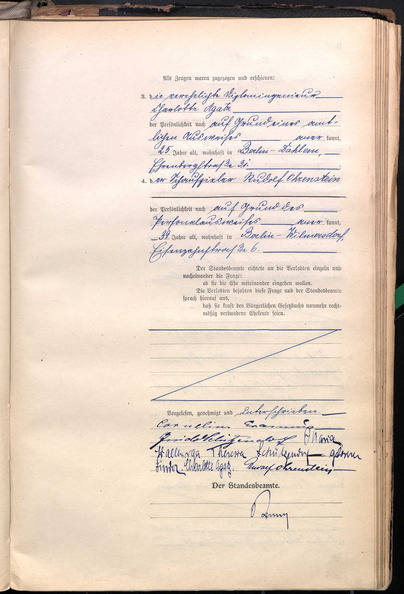 Als Zeugen waren zugezogen und erschienen:
3. die verehelichte Diplomingenieur
Charlotte Agatz
der Persönlichkeit nach auf Grund eines amt-
lichen Ausweises aner kannt,
25 Jahre alt, wohnhaft in Berlin-Dahlem,
4. der Schauspieler Rudolf Ohrenstein
der Persönlichkeit nach auf Grund des
Personalausweises aner kannt,
Jahre alt, wohnhaft in Berlin-Wilmersdorf,
Eisenzahnstraße 6.
Der Standesbeamte richtete an die Verlobten einzeln und
nacheinander die Frage:
ob sie die Ehe miteinander eingehen wollen.
Die Verlobten bejahten diese Frage und der Standesbeamte
sprach hierauf aus,
daß sie kraft des Bürgerlichen Gesetzbuchs nunmehr recht-
mäßig verbundene Eheleute seien.
Vorgelesen, genehmigt und unterschrieben
Cornelius
Maria
Walburga Theresa geborene
Charlotte Agatz Ohrenstein
Der Standesbeamte.